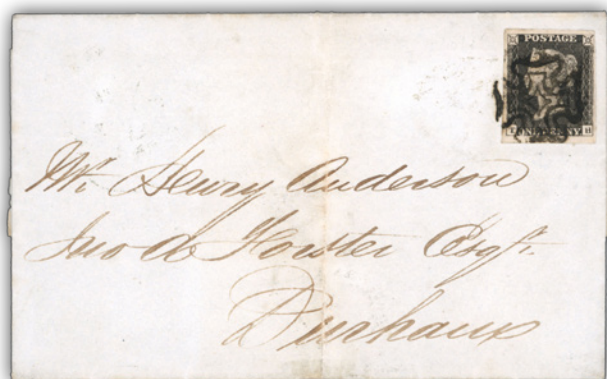 POSTAGE
ONE PENNY
Mr. Henry Anderson
Jno A Forster Esqr.
Durham